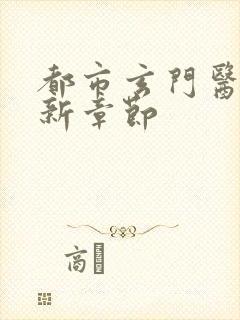 都市玄門醫
新章節
高